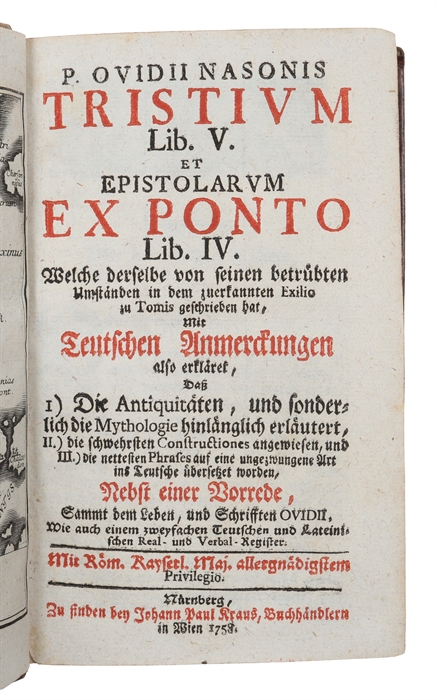 P. OVIDII NASONIS
TRISTIVM
Lib. V.
ET
EPISTOLARVM
EX PONTO
Lib. IV.
Welche derselbe von seinen betrübten
Umständen in dem zuerkannten Exilio
zu Tomis geschrieben hat,
Mit
Teutschen Anmerckungen
also erkläret,
Daß
1) Die Antiquitäten, und sonder-
lich die Mythologie hinlänglich erläutert,
II.) die schwehrsten Constructiones angewiesen, und
III.) die nettesten Phrases auf eine ungezwungene Art
ins Teutsche übersetzet worden,
Nebst einer Vorrede,
Sammt dem Leben, und Schrifften OVIDII,
Wie auch einem zweyfachen Teutschen und Lateini-
schen Real- und Verbal-Register.
Mit Röm. Kayserl. Maj. allergnädigstem
Privilegio.
Nürnberg,
Zu finden bey Johann Paul Kraus, Buchhändlern
in Wien 1758.